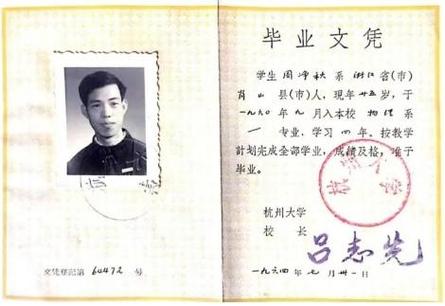 毕业文凭
学生周净秋系浙江省(市)
萧山县(市)人，现年廿五岁，于
一九六〇年九月入本校物理系
专业，学习四年。按教学
计划完成全部学业，成绩及格，准予
毕业。
杭州大学
校长 吕志先
一九六四年七月卅一日
文凭登记第 60472 号